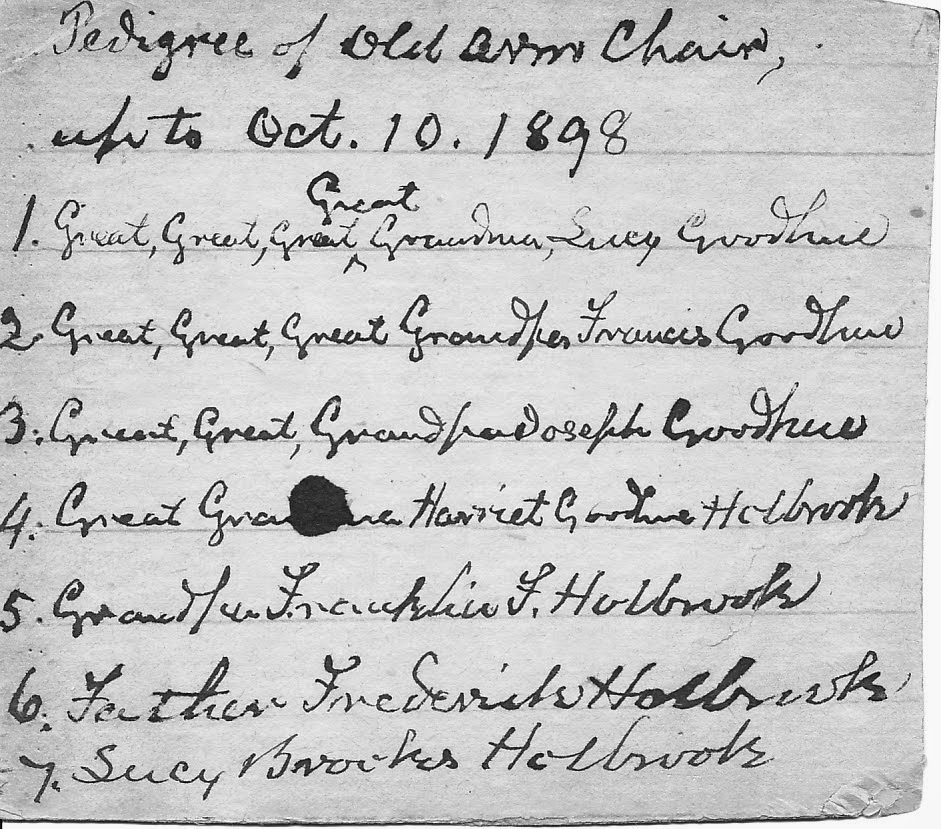 Pedigree of Old Arm Chair,
up to Oct. 10. 1898
Great
1. Great, Great, Great, Grandma, Lucy Goodhue
2. Great, Great, Great Grandpa Francis Goodhue
3. Great, Great, Grandpa Joseph Goodhue
4. Great Gra ma Harriet Goodhue Holbrook
5. Grandpa Franklin F. Holbrook
6. Father Frederick Holbrook
7. Lucy Brooks Holbrook